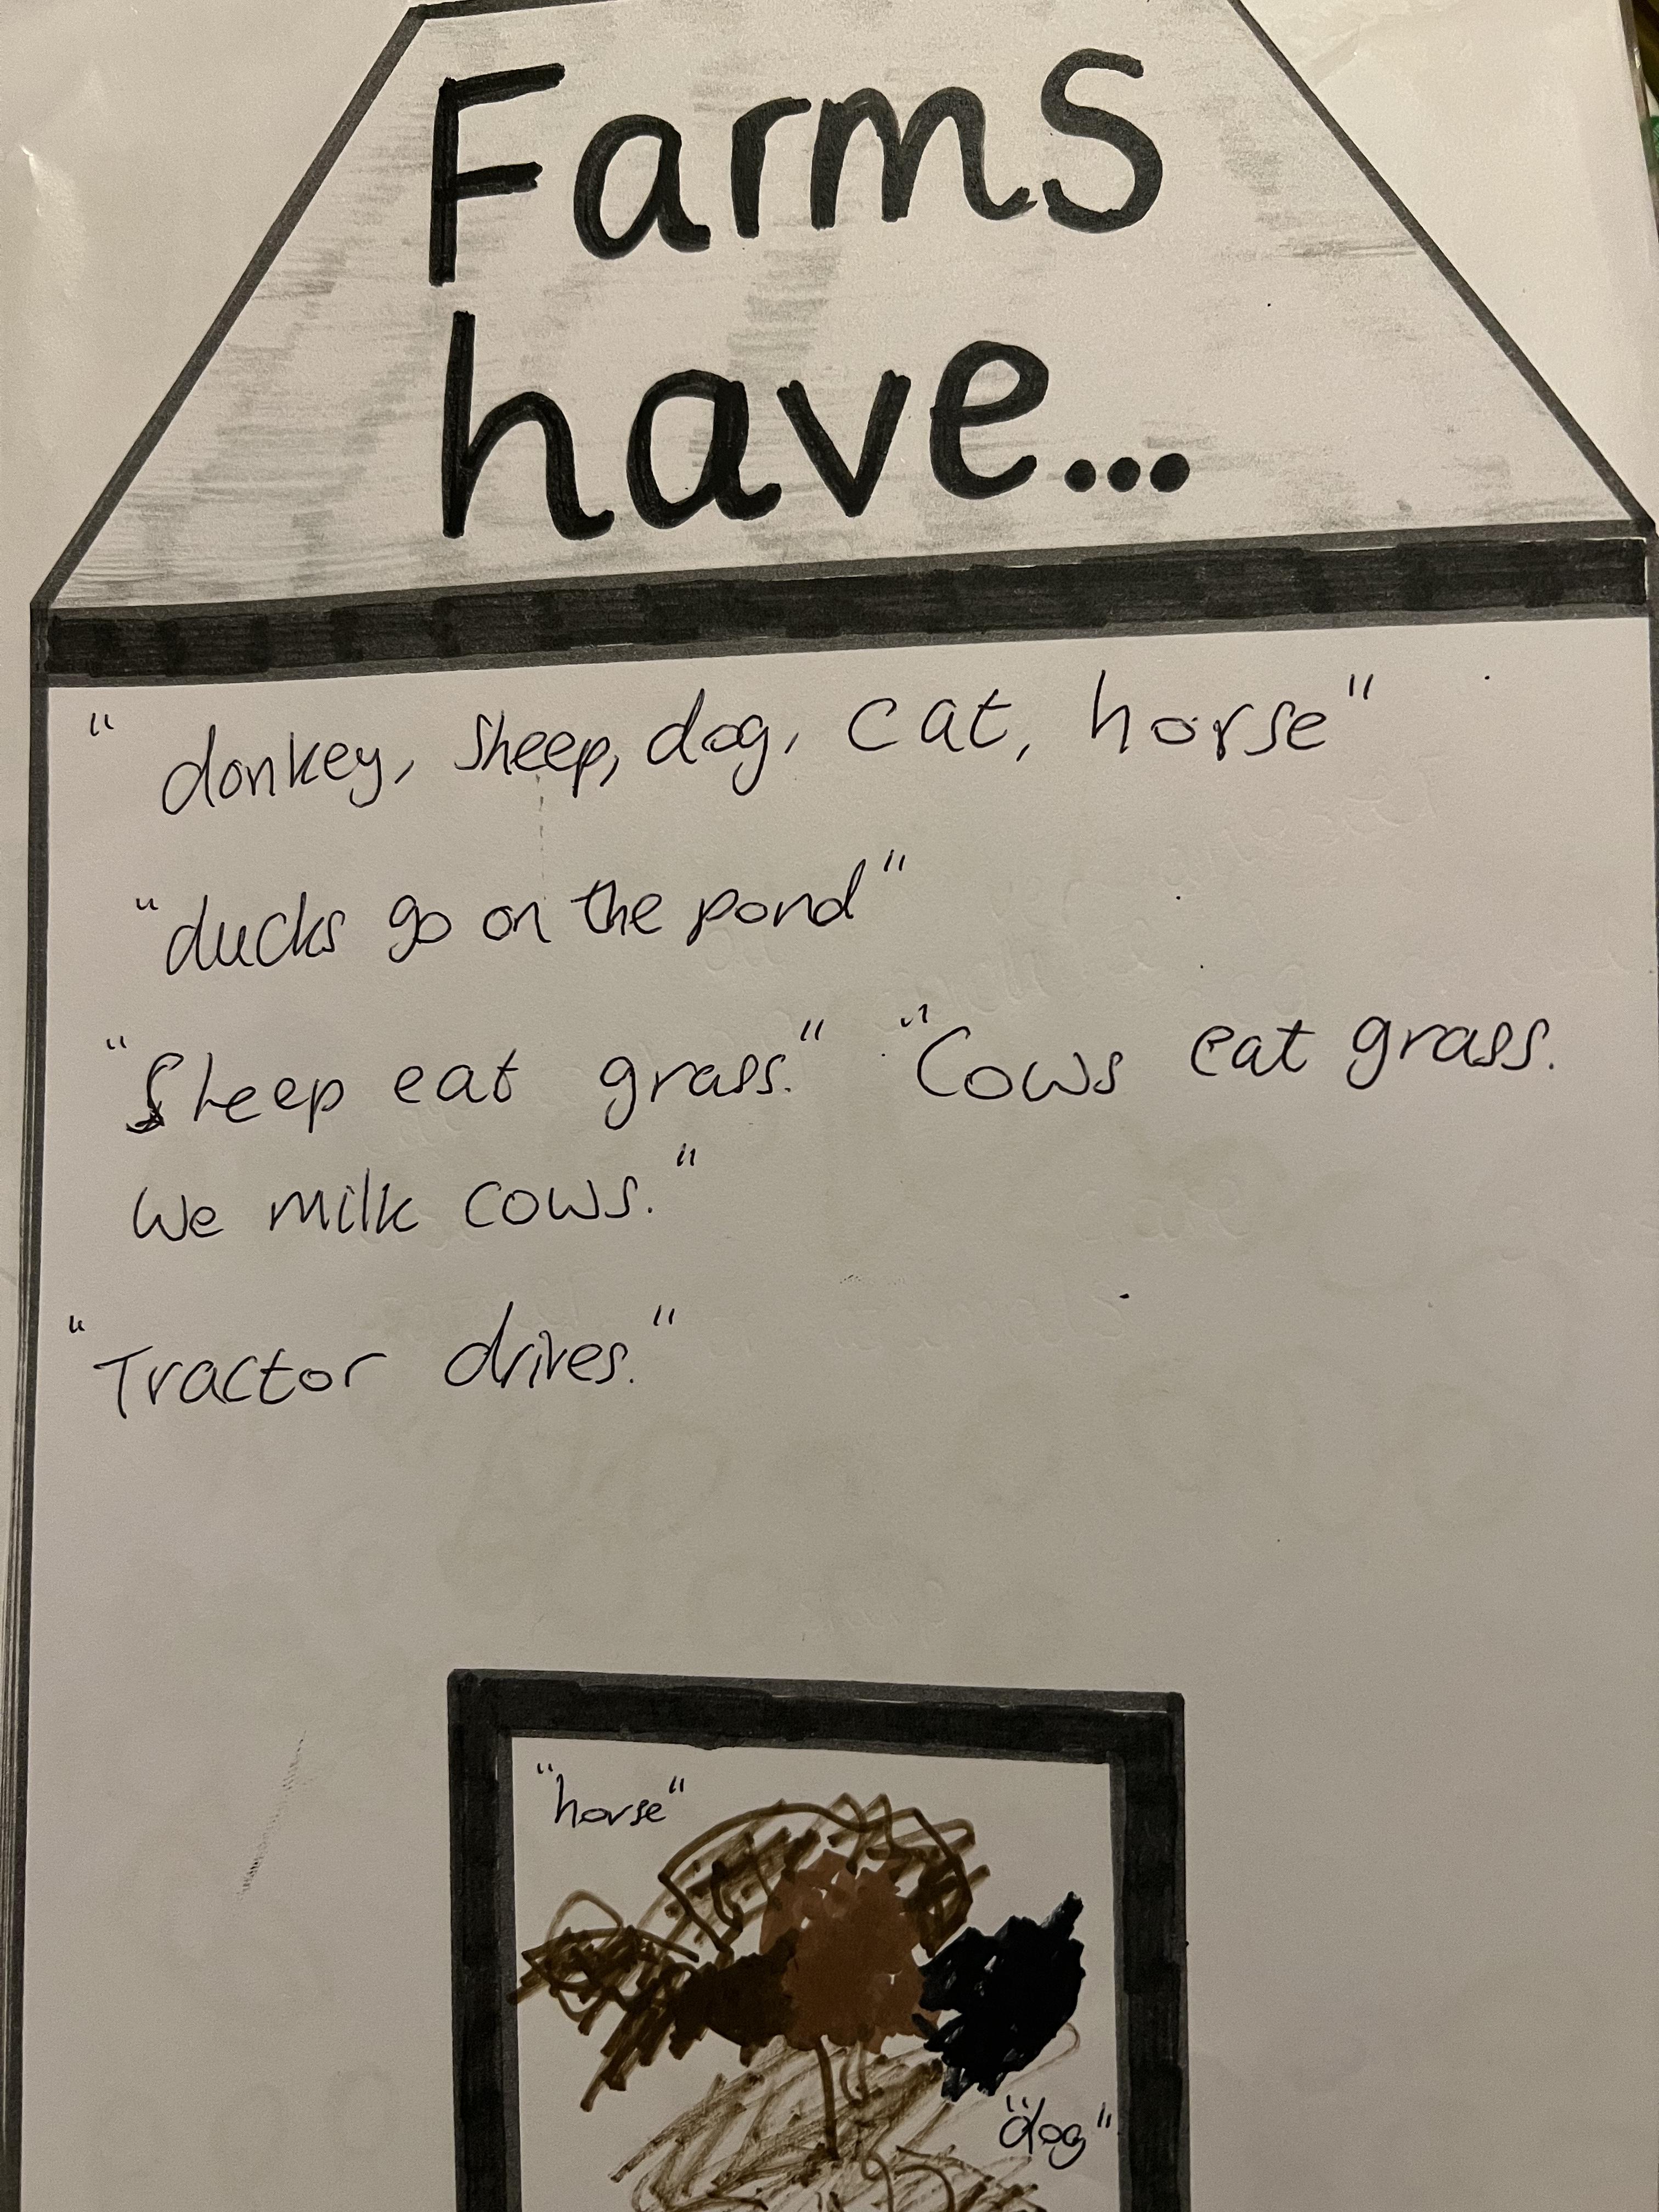 Farms
have...
"donkey, sheep, dog, cat, horse"
"ducks go on the pond"
"Sheep eat grass." "Cows eat grass.
We milk cows."
"Tractor drives."
"horse"
"dog"